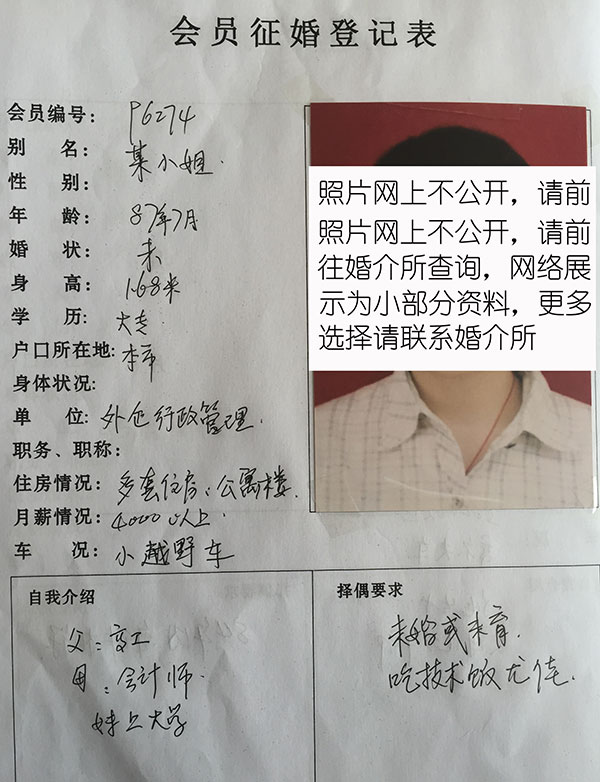 会员征婚登记表
会员编号: P6274
别 名: 某小姐.
性 别:
年 龄: 87年7月
婚 状: 未
身 高: 1.68米
学 历: 大专
户口所在地: 本市
身体状况:
单 位: 外企行政管理.
职务、职称:
住房情况: 多套住房、公寓楼.
月薪情况: 4000以上.
车 况: 小越野车
照片网上不公开，请前
照片网上不公开，请前
往婚介所查询，网络展
示为小部分资料，更多
选择请联系婚介所
自我介绍
父: 职工
母: 会计师.
妹上大学
择偶要求
未婚或未育.
吃技术饭尤佳.